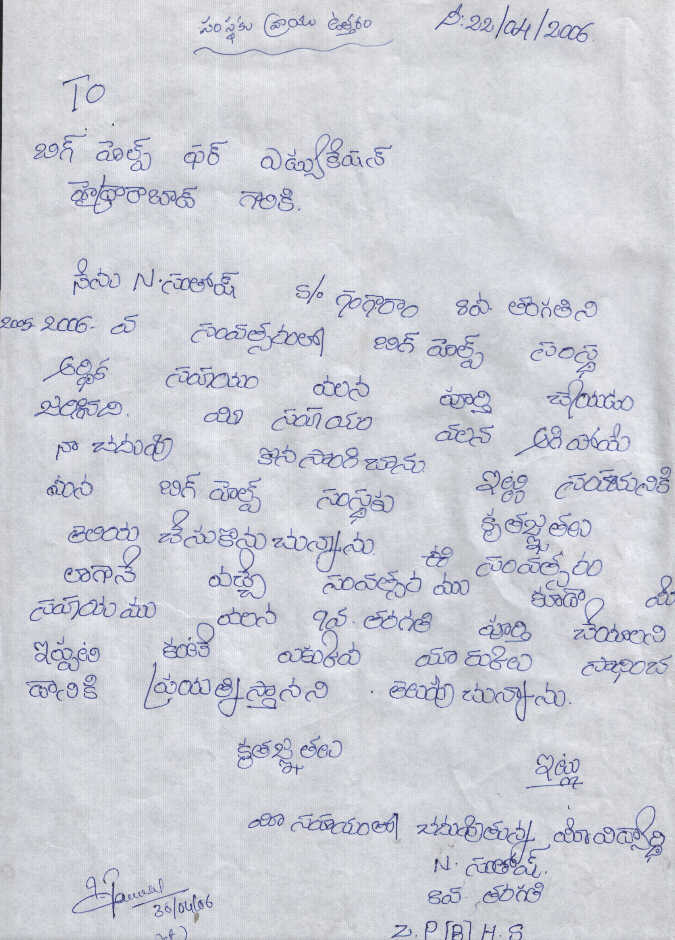 సంస్థకు వ్రాయు ఉత్తరం ది: 22/04/2006
TO
బిగ్ హెల్ప్ ఫర్ ఎడ్యుకేషన్
హైద్రాబాద్ గారికి.
నేను N. సంతోష్ S/o గంగారాం 8వ తరగతిని
2005-2006. వ సంవత్సరంలో బిగ్ హెల్ప్ సంస్థ
ఆర్థిక సహాయం వలన పూర్తి చేయడం
జరిగినది. మీ సహాయం వలన ఆగిపోయే
నా చదువు కొనసాగించాను. ఇట్టి సహాయనికి
మన బిగ్ హెల్ప్ సంస్థకు కృతజ్ఞతలు
తెలియ చేసుకొనుచున్నాను. ఈ సంవత్సరం
లాగానే వచ్చే సంవత్సరము కూడా మీ
సహాయము వలన 9వ. తరగతి పూర్తి చేయాలని
ఇప్పటి కంటే ఎక్కువ మారుకులు సాధించ
డానికి ప్రయత్నిస్తానని . తెలుపుచున్నాను.
కృతజ్ఞతలు
ఇట్లు
మీ సహాయంతో చదువుతున్న మీ విద్యార్థి
N. సంతోష్.
8వ తరగతి
30/04/06
Z.P[B]H.S